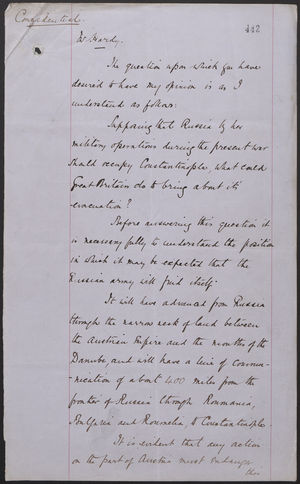 Confidential.
442
Mr Hardy.
The question upon which you have
desired to have my opinion is as I
understand as follows:
Supposing that Russia by her
military operations during the present war
should occupy Constantinople, what could
Great Britain do to bring about its
evacuation?
Before answering this question it
is necessary fully to understand the position
in which it may be expected that the
Russian army will find itself.
It will have advanced from Russia
through the narrow neck of land between
the Austrian Empire and the mouths of the
Danube, and will have a line of commu-
-nication of about 400 miles from the
frontier of Russia through Roumania,
Bulgaria and Roumelia to Constantinople.
It is evident that any action
on the part of Austria must endanger
this